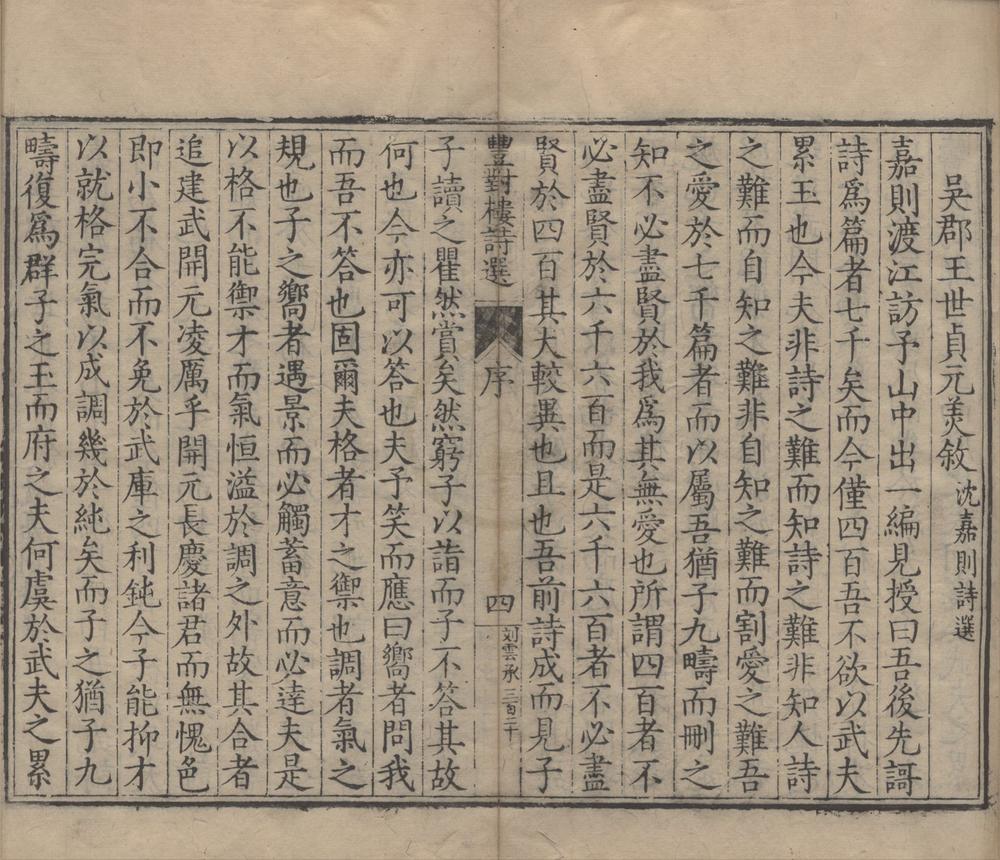 吳郡王世貞元美敘沈嘉則詩選
嘉則渡江訪予山中出一編見授曰吾後先謌
詩爲篇者七千矣而今僅四百吾不欲以武夫
累玉也今夫非詩之難而知詩之難非知人詩
之難而自知之難非自知之難而割愛之難吾
之愛於七千篇者而以屬吾猶子九疇而刪之
知不必盡賢於我爲其無愛也所謂四百者不
必盡賢於六千六百而是六千六百者不必盡
賢於四百其大較異也且也吾前詩成而見子
豐對樓詩選 序 四 刘雲承 三百二十
子讀之瞿然賞矣然窮子以詣而子不答其故
何也今亦可以答也夫予笑而應曰嚮者問我
而吾不答也固爾夫格者才之禦也調者氣之
規也子之嚮者遇景而必觸蓄意而必達夫是
以格不能禦才而氣恒溢於調之外故其合者
追建武開元凌厲乎開元長慶諸君而無愧色
即小不合而不免於武庫之利鈍今子能抑才
以就格完氣以成調幾於純矣而子之猶子九
疇復爲群子之玉而府之夫何虞於武夫之累